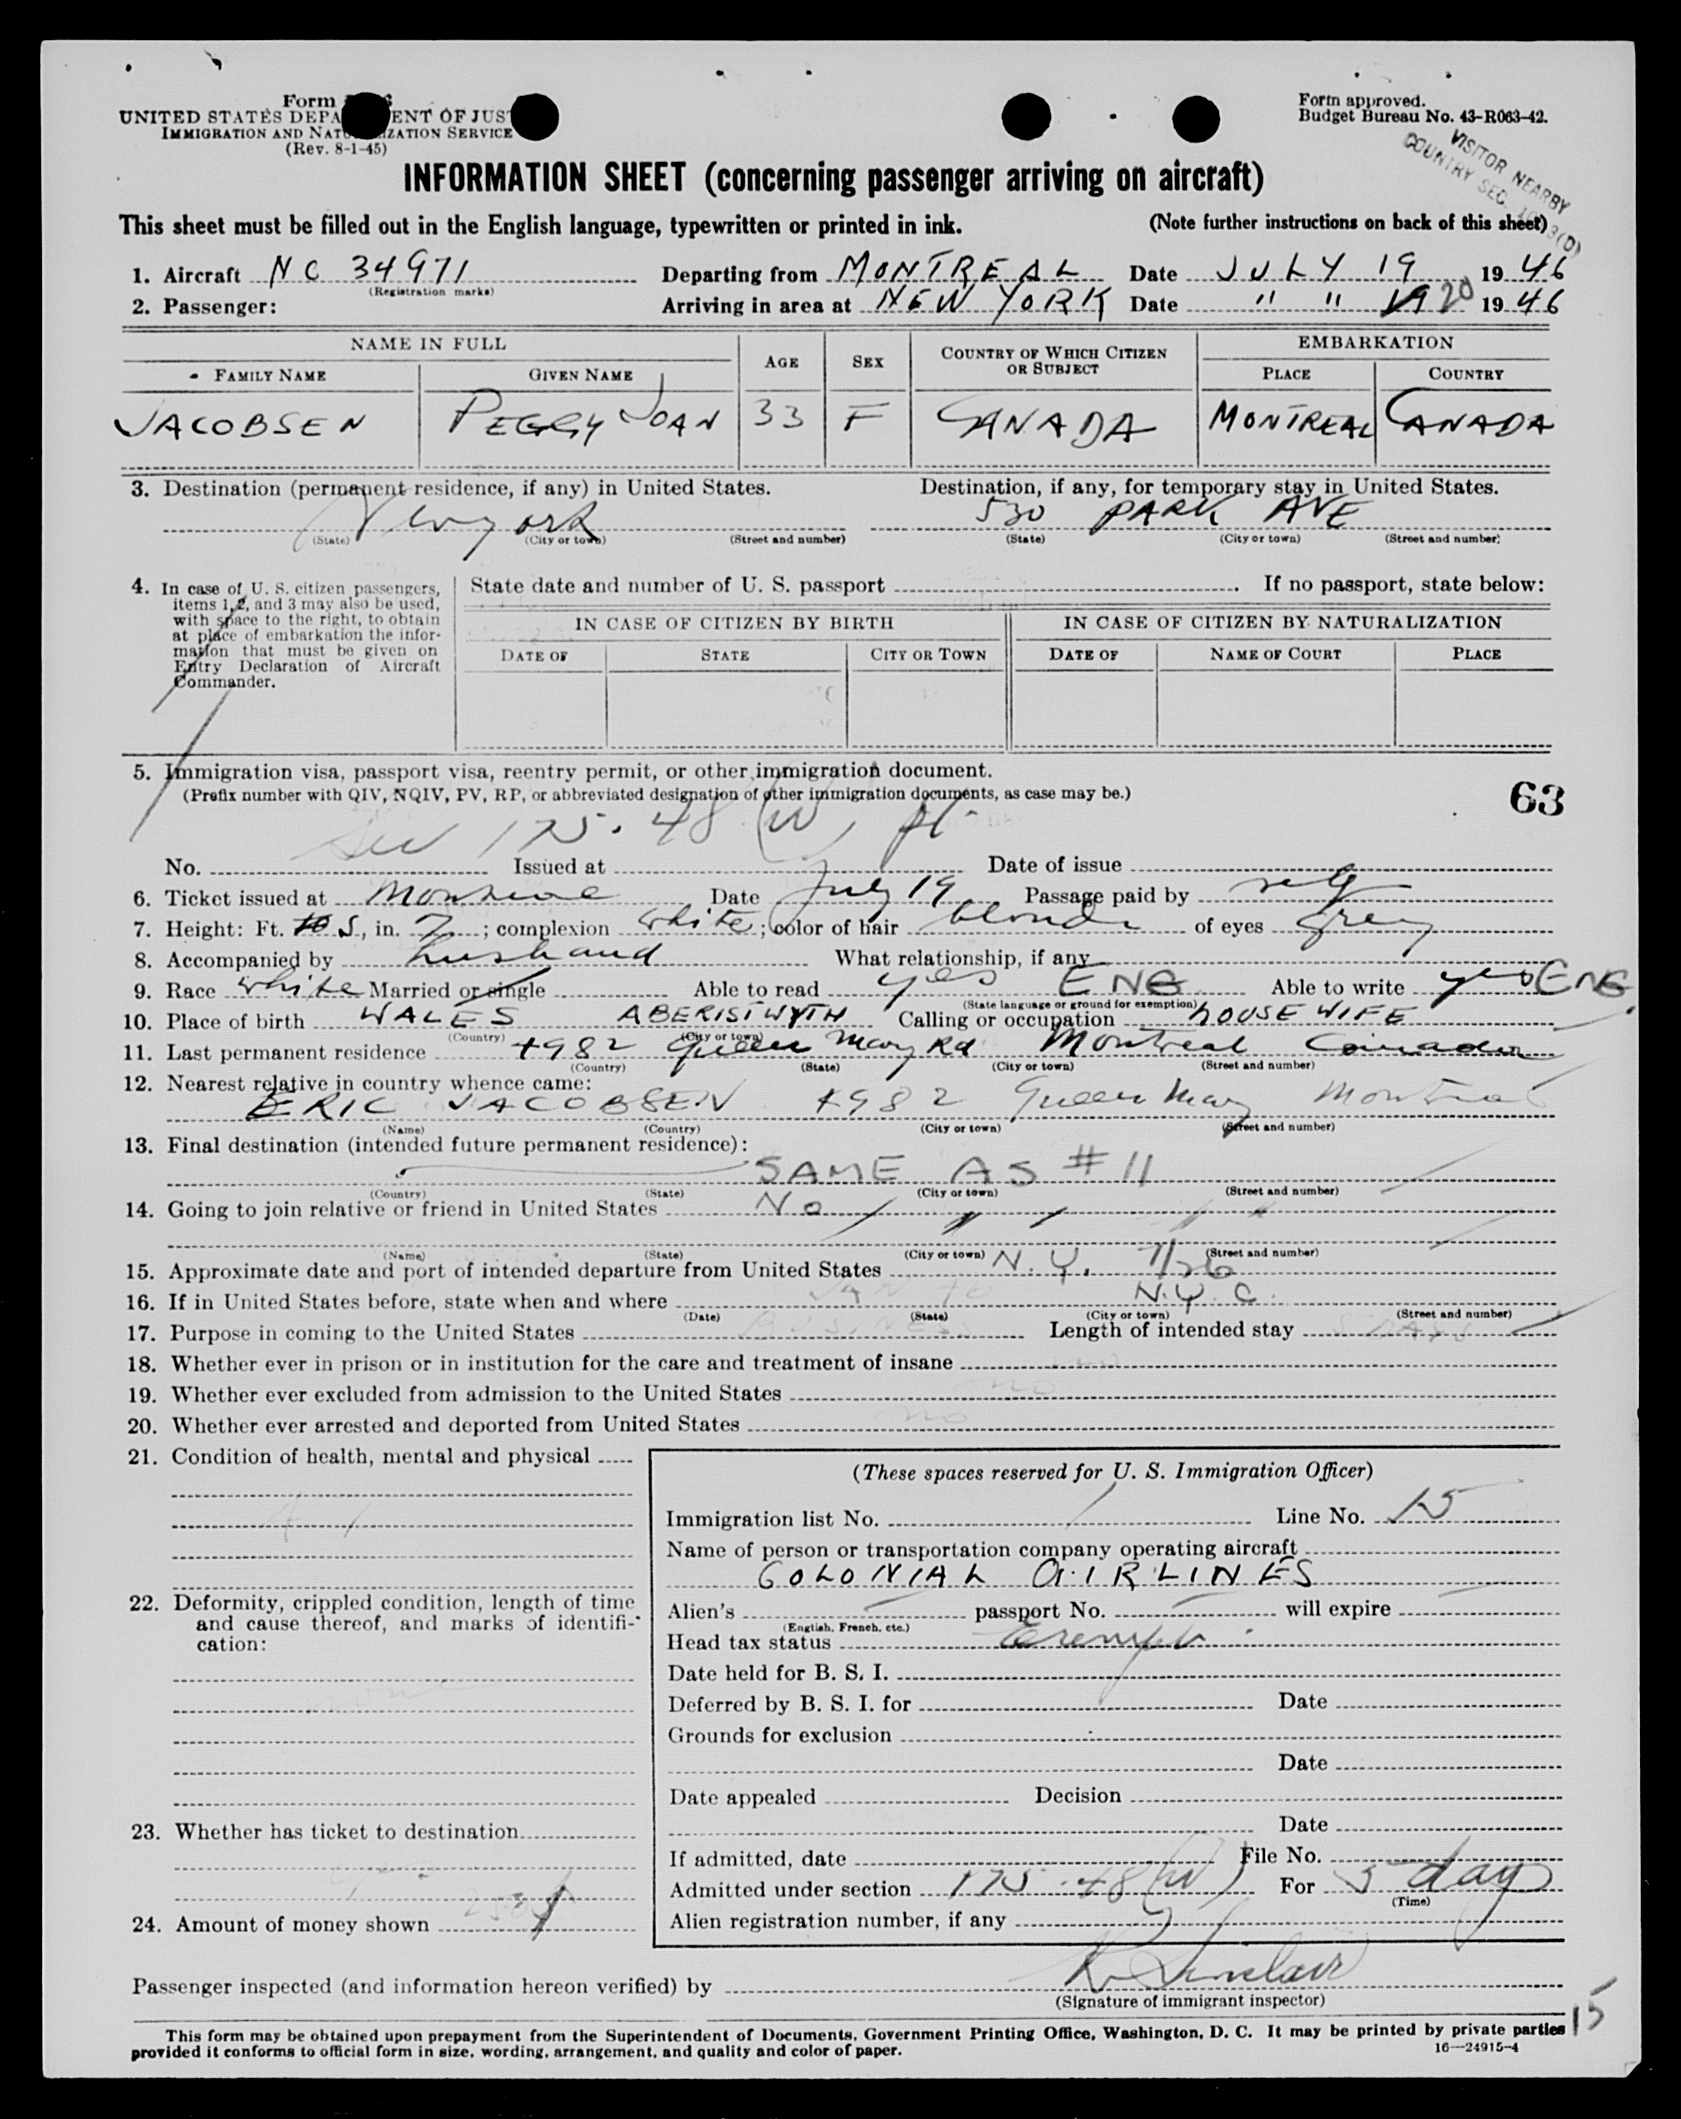 Form
UNITED STATES DEPA ENT OF JUS
IMMIGRATION AND NAT IZATION SERVICE
(Rev. 8-1-45)
Form approved.
Budget Bureau No. 43-R063-42.
VISITOR NEARBY
COUNTRY SEC. 3(D)
INFORMATION SHEET (concerning passenger arriving on aircraft)
This sheet must be filled out in the English language, typewritten or printed in ink. (Note further instructions on back of this sheet)
1. Aircraft NC 34971 Departing from MONTREAL Date JULY 19 1946
(Registration marks)
2. Passenger: Arriving in area at NEW YORK Date " " 20 1946
NAME IN FULL AGE SEX COUNTRY OF WHICH CITIZEN OR SUBJECT EMBARKATION
FAMILY NAME GIVEN NAME PLACE COUNTRY
JACOBSEN PEGGY JOAN 33 F CANADA MONTREAL CANADA
3. Destination (permanent residence, if any) in United States. Destination, if any, for temporary stay in United States.
New York 530 PARK AVE
(State) (City or town) (Street and number) (State) (City or town) (Street and number)
4. In case of U. S. citizen passengers, items 1, 2, and 3 may also be used, with space to the right, to obtain at place of embarkation the information that must be given on Entry Declaration of Aircraft Commander.
State date and number of U. S. passport . If no passport, state below:
IN CASE OF CITIZEN BY BIRTH IN CASE OF CITIZEN BY NATURALIZATION
DATE OF STATE CITY OR TOWN DATE OF NAME OF COURT PLACE
5. Immigration visa, passport visa, reentry permit, or other immigration document.
(Prefix number with QIV, NQIV, PV, RP, or abbreviated designation of other immigration documents, as case may be.)
63
175.48 (W)
No. Issued at Date of issue
6. Ticket issued at Montreal Date July 19 Passage paid by self
7. Height: Ft. 5, in. 7; complexion white; color of hair blonde of eyes grey
8. Accompanied by husband What relationship, if any
9. Race white Married or single Able to read yes ENG Able to write yes ENG
(State language or ground for exemption)
10. Place of birth WALES ABERISTWYTH Calling or occupation HOUSEWIFE
(Country) (City or town)
11. Last permanent residence 4982 Queen Mary Rd Montreal Canada
(Country) (State) (City or town) (Street and number)
12. Nearest relative in country whence came:
ERIC JACOBSEN 4982 Queen Mary Montreal
(Name) (Country) (City or town) (Street and number)
13. Final destination (intended future permanent residence):
SAME AS #11
(Country) (State) (City or town) (Street and number)
14. Going to join relative or friend in United States No
(Name) (State) (City or town) (Street and number)
15. Approximate date and port of intended departure from United States N.Y. 7/26
16. If in United States before, state when and where JAN N.Y.C.
(Date) (State) (City or town) (Street and number)
17. Purpose in coming to the United States BUSINESS Length of intended stay 5 DAYS
18. Whether ever in prison or in institution for the care and treatment of insane
19. Whether ever excluded from admission to the United States no
20. Whether ever arrested and deported from United States no
21. Condition of health, mental and physical
22. Deformity, crippled condition, length of time and cause thereof, and marks of identification:
23. Whether has ticket to destination
24. Amount of money shown
(These spaces reserved for U. S. Immigration Officer)
Immigration list No. Line No. 15
Name of person or transportation company operating aircraft
COLONIAL AIRLINES
Alien's passport No. will expire
(English, French, etc.)
Head tax status Exempt
Date held for B. S. I.
Deferred by B. S. I. for Date
Grounds for exclusion
Date
Date appealed Decision
Date
If admitted, date File No.
Admitted under section 175.48(W) For 5 days
(Time)
Alien registration number, if any
Passenger inspected (and information hereon verified) by K Sinclair
(Signature of immigrant inspector)
15
This form may be obtained upon prepayment from the Superintendent of Documents, Government Printing Office, Washington, D. C. It may be printed by private parties
provided it conforms to official form in size, wording, arrangement, and quality and color of paper.
16—24915-4